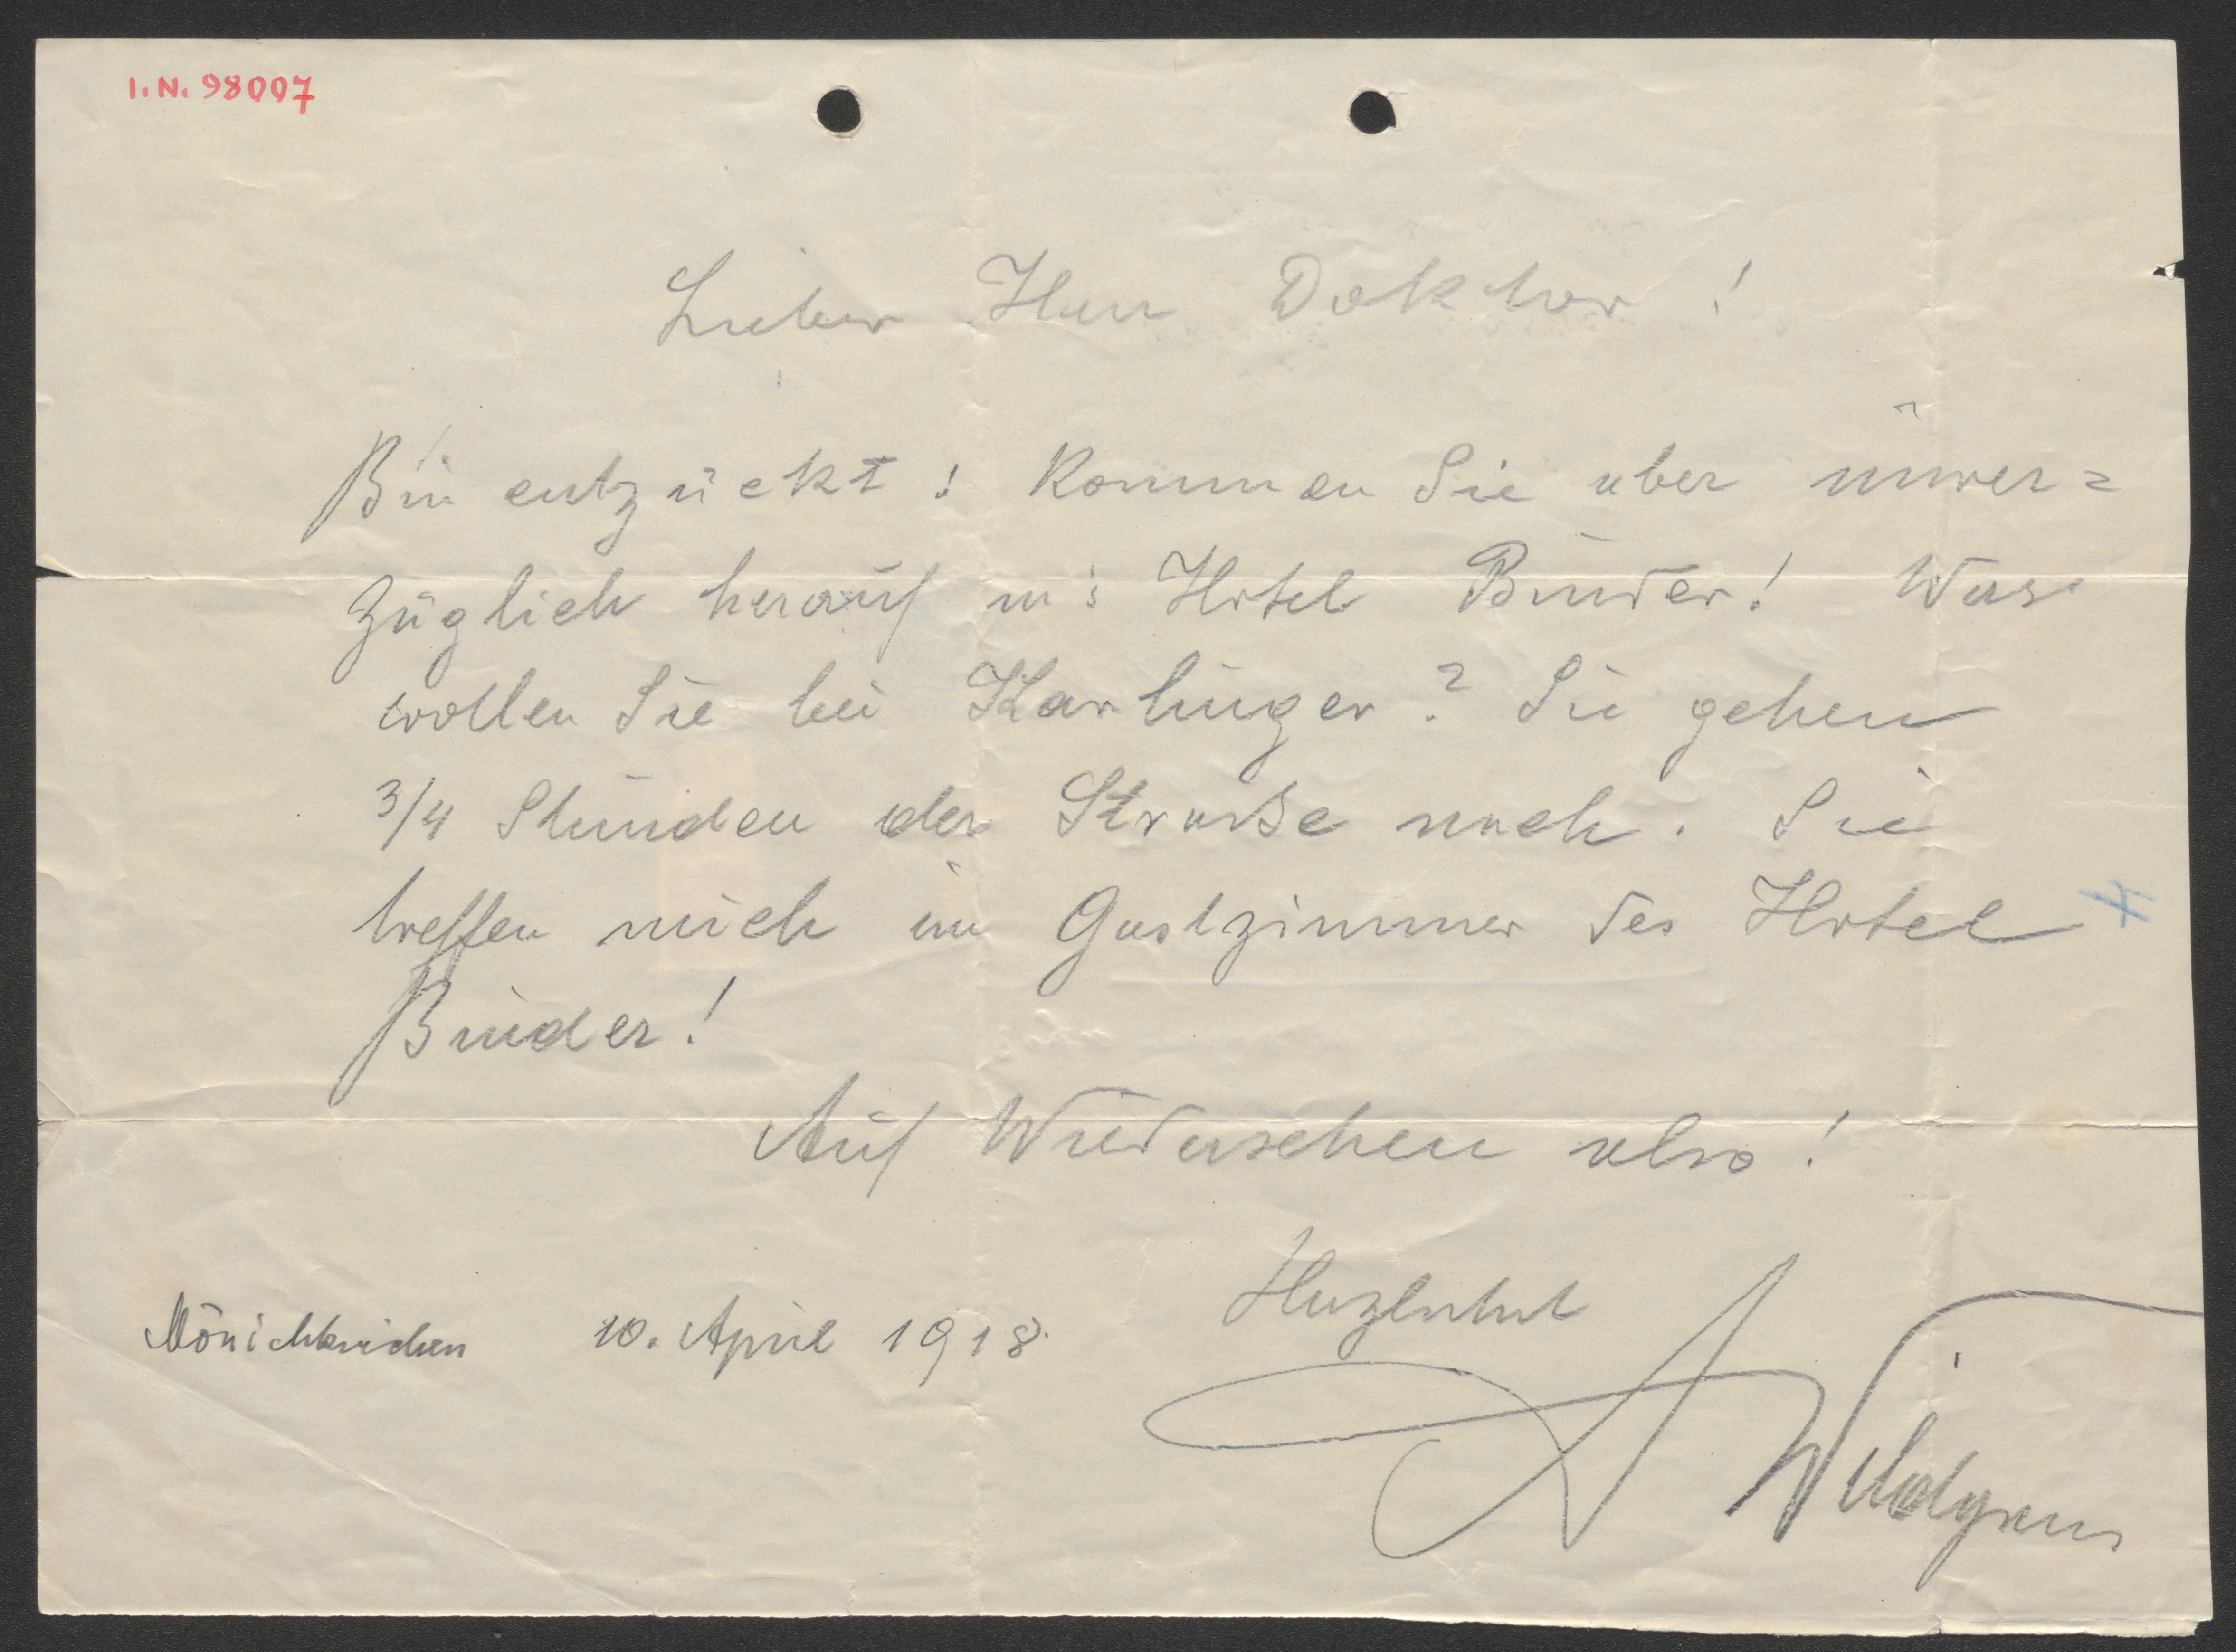 I.N. 98007
Lieber Herr Doktor!
Bin entzückt! Kommen Sie aber unver=
züglich herauf in's Hotel Binder! Was
wollen Sie bei Karlinger? Sie gehen
3/4 Stunden der Straße nach. Sie
treffen mich im Gastzimmer des Hotel
Binder!
Auf Wiedersehen also!
Herzlichst
Mönichkirchen 10. April 1918
A Wildgans